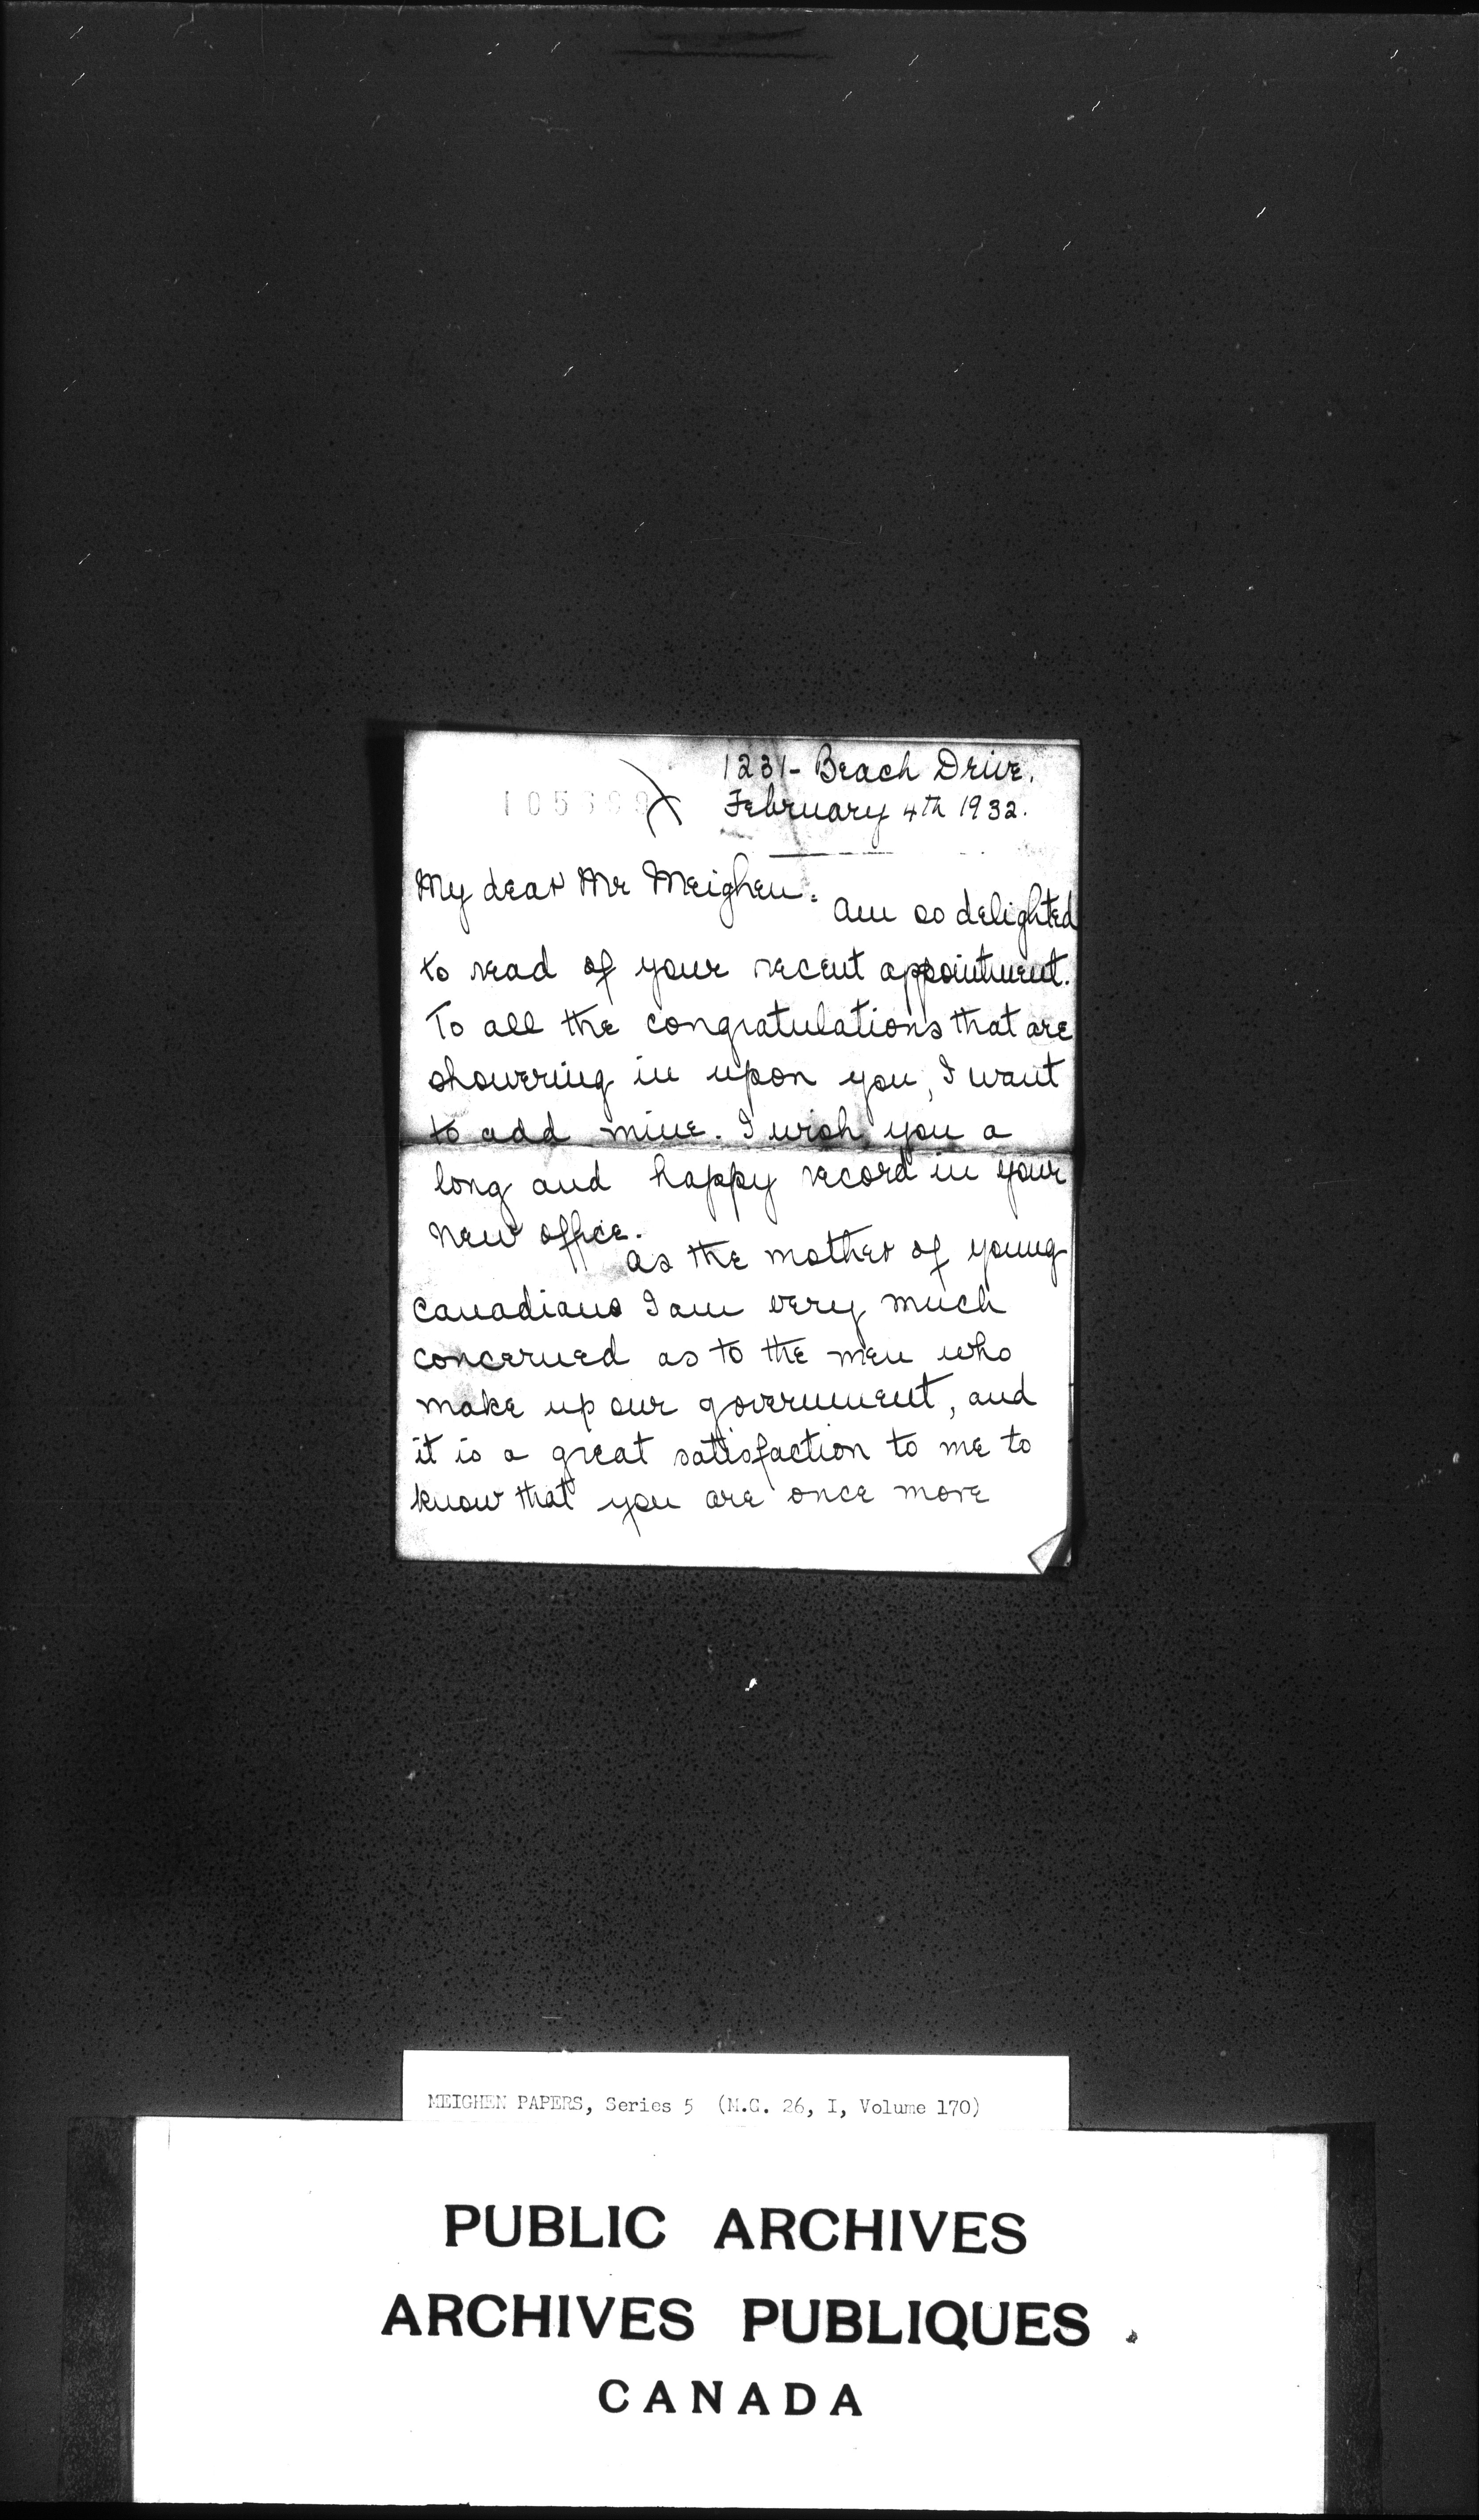 1231- Beach Drive.
February 4th 1932.
My dear Mr Meighen:
Am so delighted
to read of your recent appointment.
To all the congratulations that are
showering in upon you, I want
to add mine. I wish you a
long and happy record in your
new office.
As the mother of young
Canadians I am very much
concerned as to the men who
make up our government, and
it is a great satisfaction to me to
know that you are once more
MEIGHEN PAPERS, Series 5 (M.G. 26, I, Volume 170)
PUBLIC ARCHIVES
ARCHIVES PUBLIQUES
CANADA